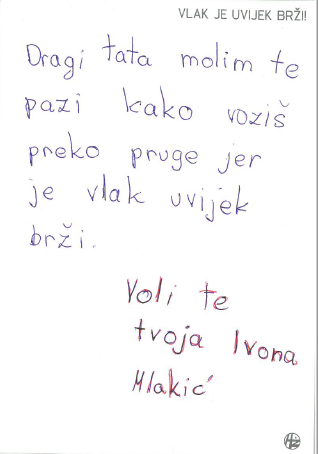 VLAK JE UVIJEK BRŽI!
Dragi tata molim te
pazi kako voziš
preko pruge jer
je vlak uvijek
brži.
Voli te
tvoja Ivona
Mlakić
HŽ